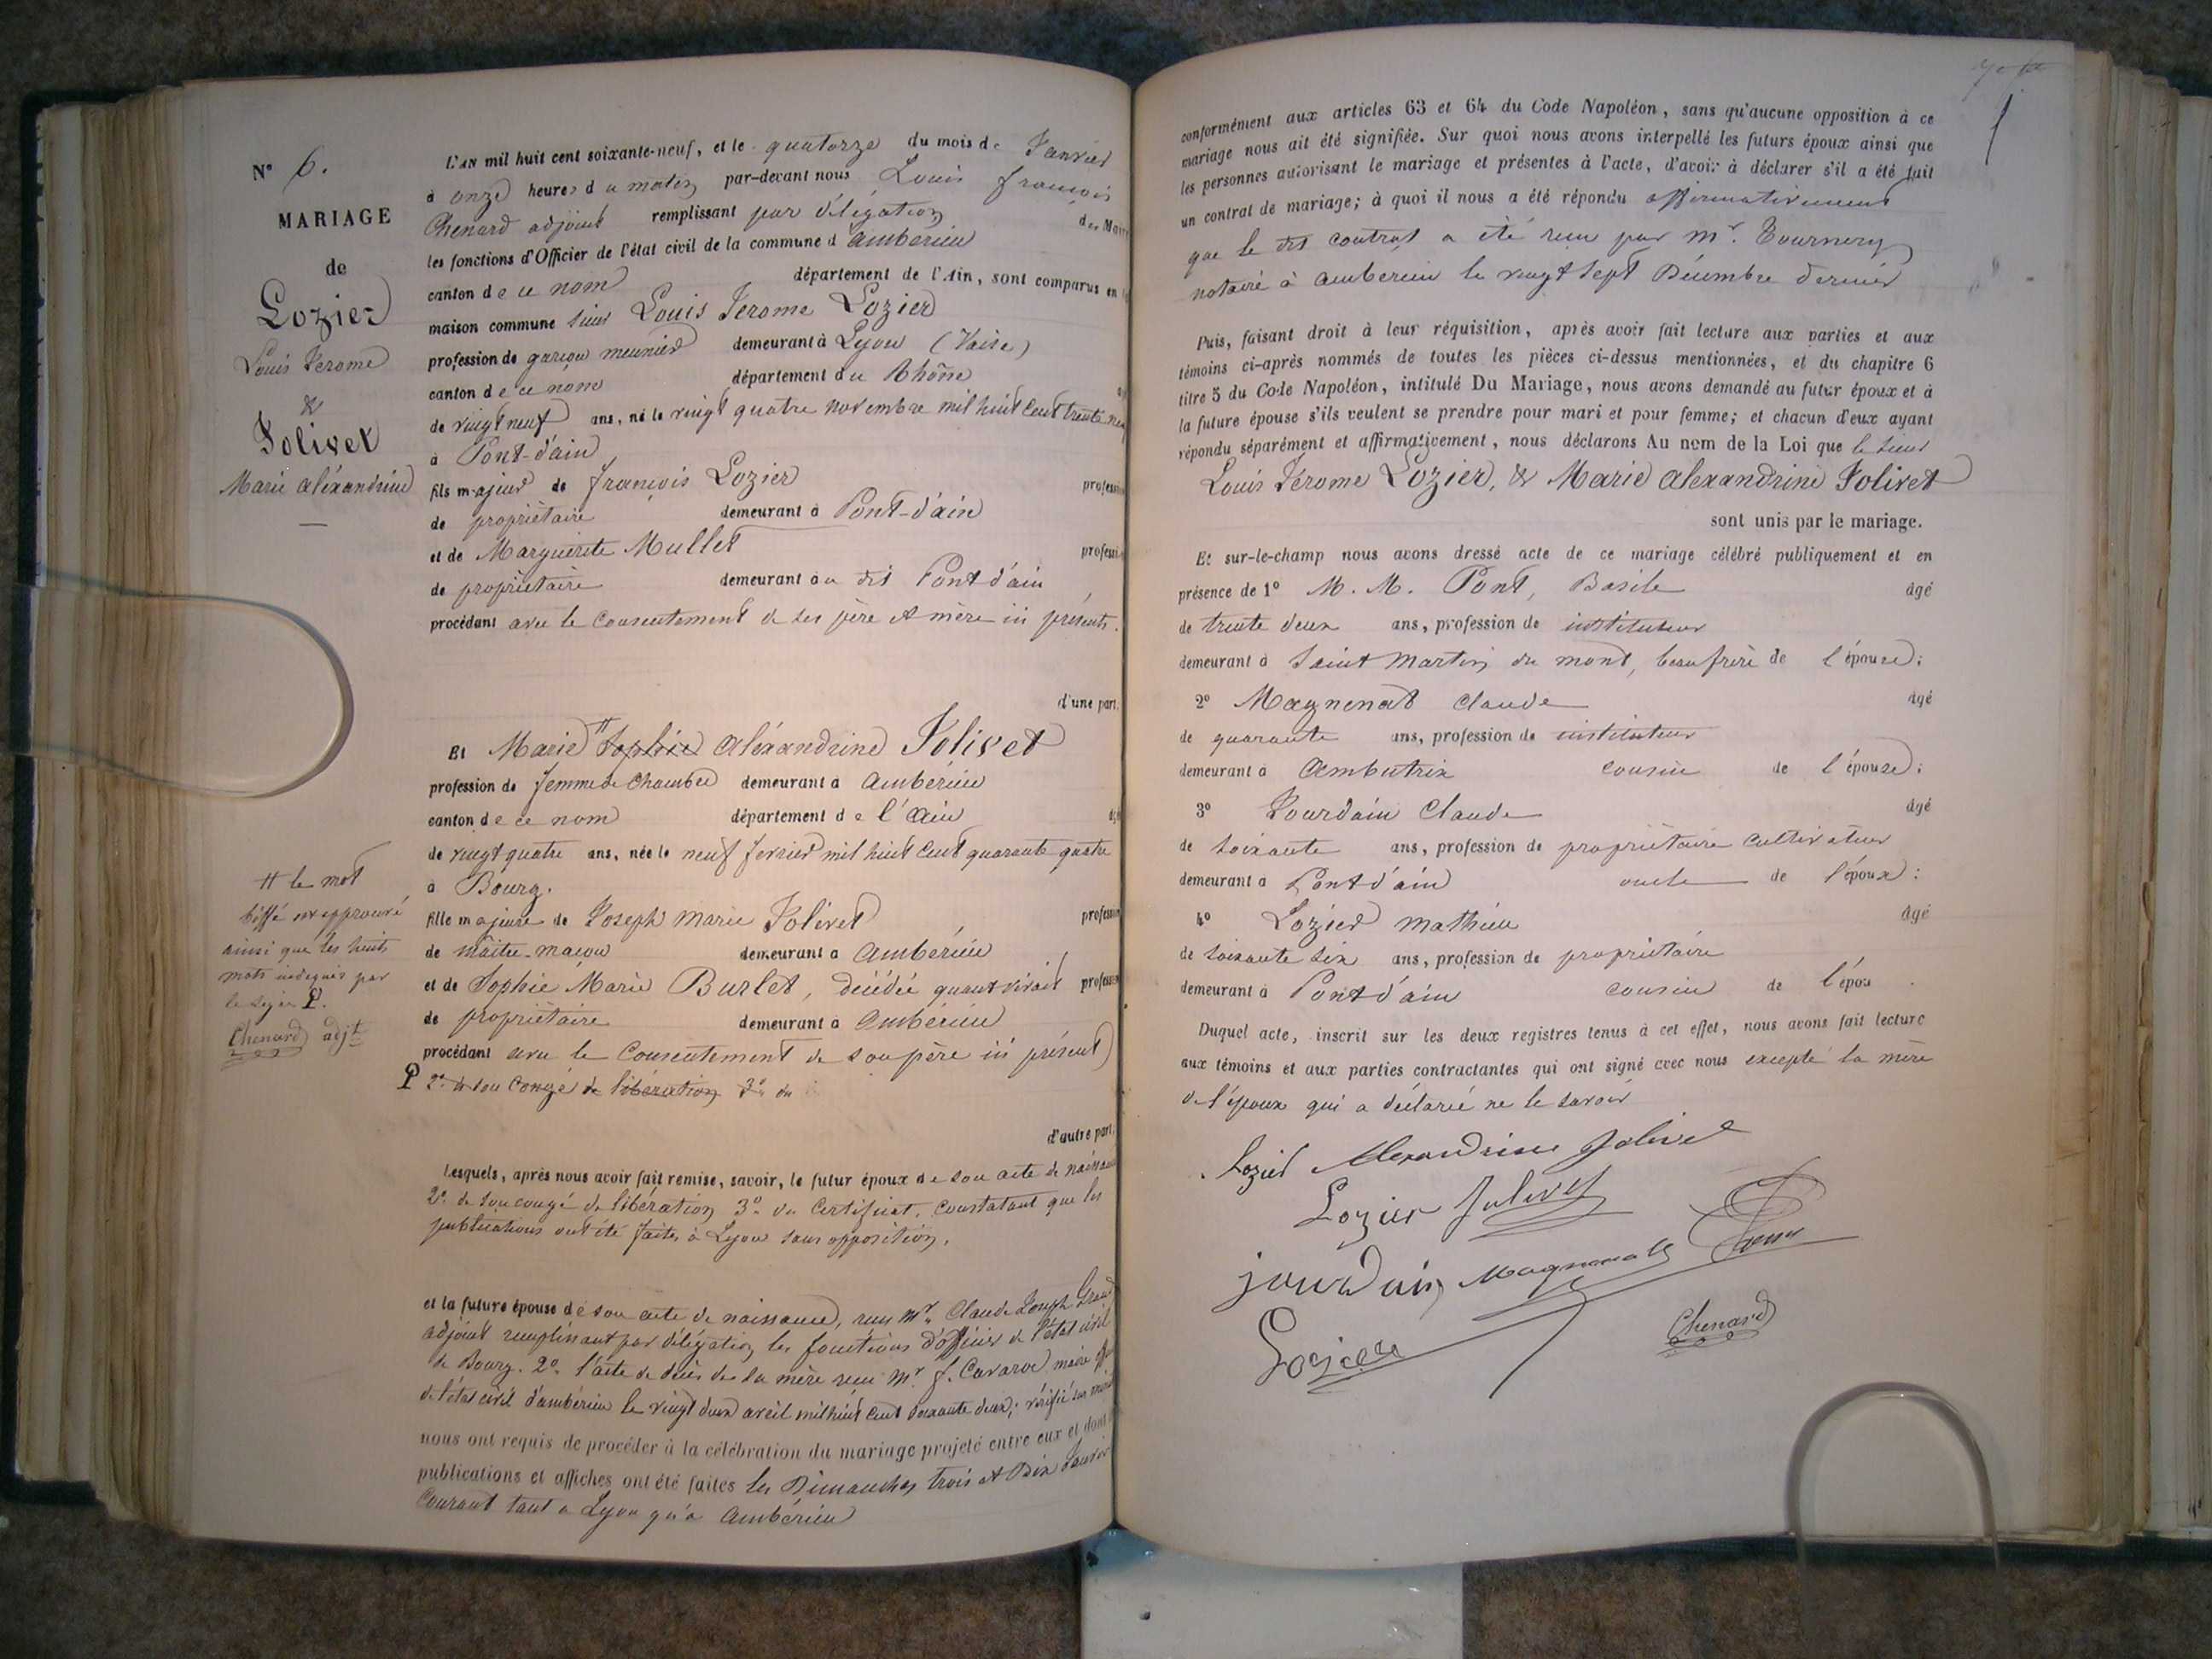 N° 6.
MARIAGE
de
Lozier
Louis Jerome
&
Jolivet
Marie aléxandrine
# le mot
biffé est approuvé
ainsi que les huits
mots indiqués par
le signe P.
Chenard adjt
L'AN mil huit cent soixante-neuf, et le quatorze du mois de Janvier
à onze heures du matin par-devant nous Louis françois
Chenard adjoint remplissant par délégation des Maire
les fonctions d'Officier de l'état civil de la commune d'ambérieu
canton de ce nom département de l'Ain, sont comparus en
maison commune sieur Louis Jerome Lozier
profession de garçon meunier demeurant à Lyon (Vaise)
canton de ce nom département du Rhône
de vingt neuf ans, né le vingt quatre novembre mil huit cent trente neuf
à Pont-d'ain
fils majeur de françois Lozier profession
de propriétaire demeurant à Pont-d'ain
et de Marguerite Mullet profession
de propriétaire demeurant au dit Pont d'ain
procédant avec le consentement de ses père et mère ici présents.
d'une part.
Et Marie # Sophie aléxandrine Jolivet
profession de femme de chambre demeurant à ambérieu
canton de ce nom département de l'ain
de vingt quatre ans, née le neuf fevrier mil huit cent quarante quatre
à Bourg.
fille majeure de Joseph Marie Jolivet profession
de maître-maçon demeurant à ambérieu
et de Sophie Marie Burlet, décédée quant vivait profession
de propriétaire demeurant à ambérieu
procédant avec le consentement de son père ici présent
P 2° de son congé de libération 3° du
d'autre part.
Lesquels, après nous avoir fait remise, savoir, le futur époux de son acte de naissance
2° de son congé de libération 3° du certificat, constatant que les
publications ont été faites à Lyon sans opposition.
et la future épouse de son acte de naissance, reçu Mr. Claude Joseph
adjoint remplissant par délégation les fonctions d'officier de l'état civil
de Bourg. 2° l'acte de décès de sa mère reçu Mr. f. Cavarod maire
de l'état civil d'ambérieu le vingt deux avril mil huit cent soixante deux; vérifié sur
nous ont requis de procéder à la célébration du mariage projeté entre eux et dont
publications et affiches ont été faites les Dimanches trois et Dix Janvier
courant tant à Lyon qu'à ambérieu
conformément aux articles 63 et 64 du Code Napoléon, sans qu'aucune opposition à ce
mariage nous ait été signifiée. Sur quoi nous avons interpellé les futurs époux ainsi que
les personnes autorisant le mariage et présentes à l'acte, d'avoir à déclarer s'il a été fait
un contrat de mariage; à quoi il nous a été répondu affirmativement
que le dit contrat a été reçu par Mr. Tournery
notaire à ambérieu le vingt sept Décembre dernier
Puis, faisant droit à leur réquisition, après avoir fait lecture aux parties et aux
témoins ci-après nommés de toutes les pièces ci-dessus mentionnées, et du chapitre 6
titre 5 du Code Napoléon, intitulé Du Mariage, nous avons demandé au futur époux et à
la future épouse s'ils veulent se prendre pour mari et pour femme; et chacun d'eux ayant
répondu séparément et affirmativement, nous déclarons Au nom de la Loi que le sieur
Louis Jérome Lozier, & Marie alexandrine Jolivet
sont unis par le mariage.
Et sur-le-champ nous avons dressé acte de ce mariage célébré publiquement et en
présence de 1° M. M. Pont, Basile âgé
de trente deux ans, profession de instituteur
demeurant à Saint Martin du mont, beaufrère de l'épouse;
2° Magnenat Claude âgé
de quarante ans, profession de instituteur
demeurant à ambutrix cousin de l'épouse;
3° Jourdain Claude âgé
de soixante ans, profession de propriétaire cultivateur
demeurant à Pont d'ain oncle de l'époux;
4° Lozier Mathieu âgé
de soixante six ans, profession de propriétaire
demeurant à Pont d'ain cousin de l'épou
Duquel acte, inscrit sur les deux registres tenus à cet effet, nous avons fait lecture
aux témoins et aux parties contractantes qui ont signé avec nous excepté la mère
de l'époux qui a déclaré ne le savoir
Lozier Alexandrine Jolivet
Lozier Jolivet
jourdain Magnenat Pont
Lozier Chenard